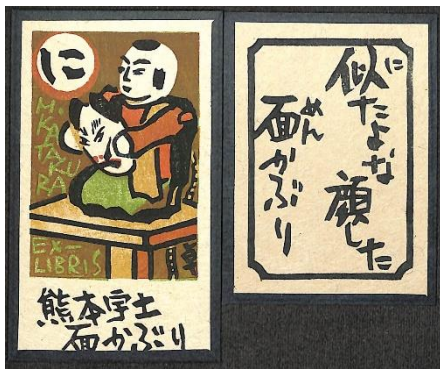 に
M.
KATAKU
RA
EX-
LIBRIS
熊本宇土
面かぶり
似たよな
に
顔した
面かぶり
めん